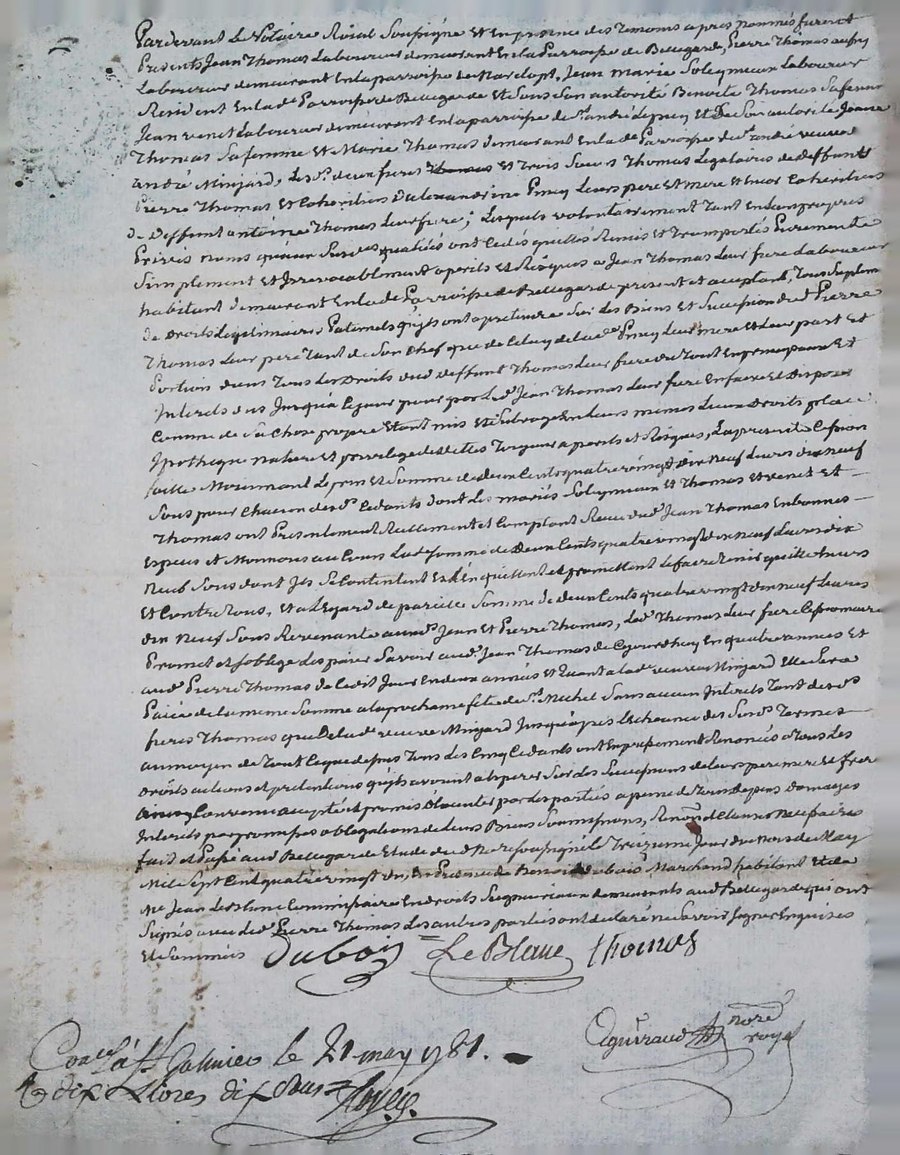 Pardevant Le Notaire Roial Soussigné et En presence des Temoins apres nommés furent
Presents Jean Thomas Laboureur demeurant En la Parroisse de Bellegarde, Pierre Thomas aussy
Laboureur demeurant En la parroisse de Marclopt, Jean Marie Soleymieux Laboureur
Resident En lad. Parroisse de Bellegarde Et Sous Son autorité Benoite Thomas Sa femme
Jean venet Laboureur demeurant En la parroisse de St. andré le puy Et De Son autorité Jeanne
Thomas Sa femme Et Marie Thomas demeurant En lad. Parroisse de St. andré veuve
andré Minjard, Les d. deux freres Et Trois Soeurs Thomas Legataires de deffunt
Pierre Thomas Et Coheritiers D'alexandrine Leurs pere Et Mere et Encor Coheritiers
de Deffunt antoine Thomas Leur frere; Lesquels volontairement Tant En Leurs propres
Privés noms qu'aux Susd. qualités ont Cedés quittés Remis et Transportés Purement Et
Simplement Et Irrevocablement a perils et Risques a Jean Thomas Leur frere Laboureur
habitant demeurant En lad. Parroisse de Bellegarde present et acceptant, Tous Suplement
de Droits Legitimaires Paternels qu'ils ont a pretendre Sur Les Biens et Succession dud. Pierre
Thomas Leur pere Tant de Son Chef que de Celuy de lad. Leur Mere et Leur part Et
Portion dans Tous Les Droits dud. deffunt Thomas Leur frere du Tout En principaux Et
Interets dus Jusqu'a Ce jour pour par Led. Jean Thomas Leur frere En faire Et Disposer
Comme de Sa Chose propre Etant mis et Subrogé En Leurs mêmes Lieux Droits place
Ipotheque nature Et privilege desdittes Toujours a perils et Risques, La presente Cession
faitte Moiennant Le prix et Somme de deux Cents quatre vingt dix Neuf Livres dix neuf
Sous pour Chacun desd. Cedants dont Les mariés Soleymieux Et Thomas et venet Et
Thomas ont Presentement Reellement et Comptant Receu dud. Jean Thomas En bonnes
Especes et Monnoies au Cours Lad. Somme de deux Cents quatre vingt dix neuf Livres dix
Neuf Sous dont Ils Se Contentent Et L'en quittent et promettent Le faire Tenir quitte Envers
Et Contre Tous, Et a L'egard de pareille Somme de deux Cents quatre vingt dix neuf Livres
dix neuf Sous Revenante auxd. Jean Et Pierre Thomas, Led. Thomas Leur frere Cessionnaire
Promet et S'oblige Les paier Savoir aud. Jean Thomas de Ce jourd'huy En quatre années Et
aud. Pierre Thomas de Cedit Jour En deux années et Quant a Lad. veuve Minjard Elle Sera
Paiée de La meme Somme a La prochaine fête de St. Michel Sans aucun Interets Tant desd.
freres Thomas que De Lad. veuve Minjard Jusqu'apres L'echeance des Susd. Termes
au moyen de Tout Ce que dessus Tous Les Cinq Cedants ont Expressement Renoncés a Tous Les
Droits actions et pretentions qu'ils avoient a Esperer Sur Les Successions de Leurs pere mere Et frere
ainsy Convenu accepté et promis Executer par Les parties a peine de Tous depens Domages
Interets par Exprès obligations de Leurs Biens Soumissions, Renon. Et Clauses Necessaires
fait Et Passé aud. Bellegarde Etude dud. Nore. soussigné Le Treizieme Jour du Mois de May
Mil Sept Cent quatre vingt un, En Presence de Benoit Dubois Marchand habitant Et de
Me. Jean Leblanc Commissaire En droits Seigneuriaux demeurants aud. Bellegarde qui ont
Signés avec Led. Pierre Thomas Les autres parties ont declaré ne Savoir Signer Enquises
Et Sommées
Dubois LeBlanc thomas
noré royal
lé a St Galmier le 21 may 1781.
dix Livres dix Sous